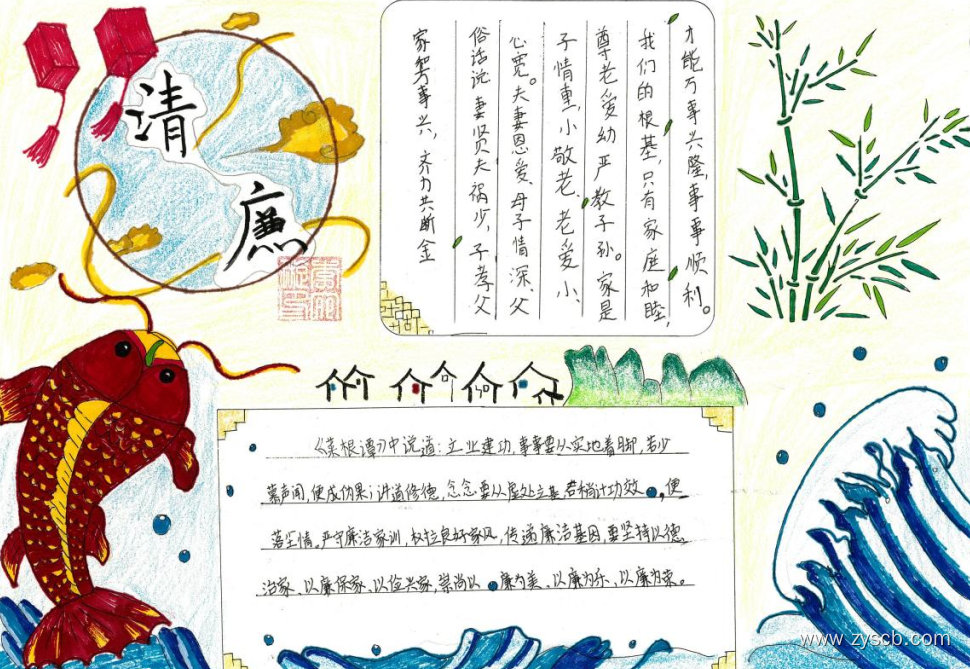 清
廉
家和万事兴，齐力共断金
俗话说妻贤夫祸少，子孝父
心宽。夫妻恩爱、母子情深、父
子情重，小敬老、老爱小、
尊老爱幼严教子孙。家是
我们的根基，只有家庭和睦，
才能万事兴隆，事事顺利。
《菜根谭》中说道：立业建功，事事要从实地着脚，若少
慕声闻，便成伪果；讲道修德，念念要从虚处立基，若稍计功效，便
落尘情。严守廉洁家训，树立良好家风，传递廉洁基因，要坚持以德
治家、以廉保家、以俭兴家，崇尚以廉为美、以廉为乐、以廉为荣。
www.zyscb.com